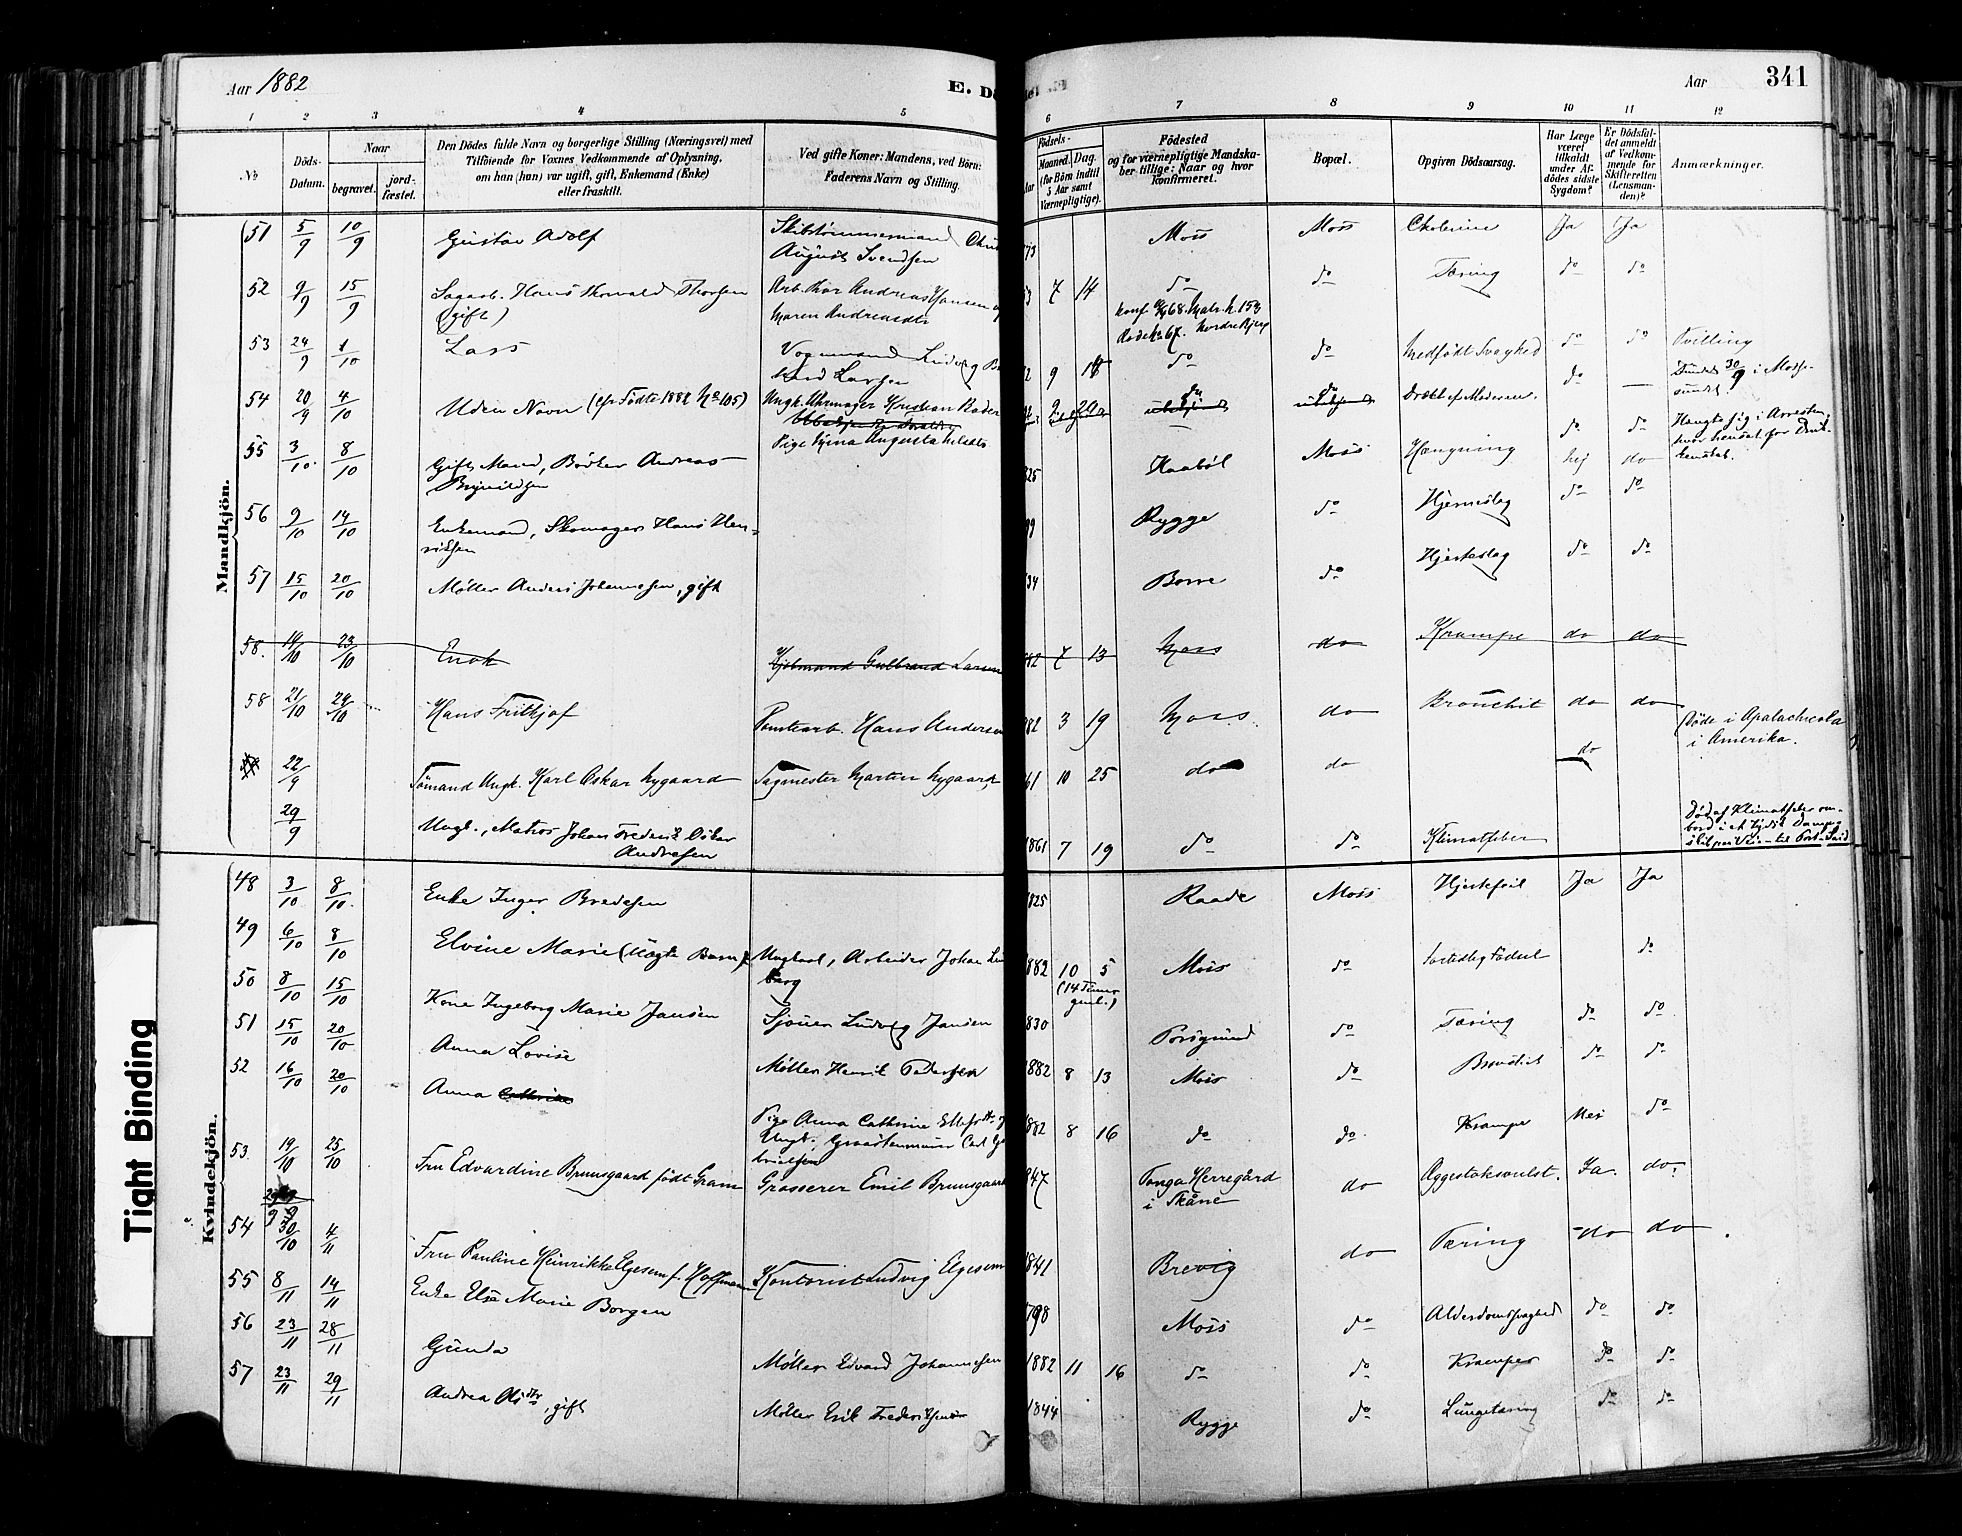 Aar 1882
E. Dø
Aar 341
1 2 3 4 5 6 7 8 9 10 11 12
No
Døds-Datum.
Naar
begravet.
jord-fæstet.
Den Dødes fulde Navn og borgerlige Stilling (Næringsvei) med
Tilføiende for Voxnes Vedkommende af Oplysning,
om han (hun) var ugift, gift, Enkemand (Enke)
eller fraskilt.
Ved gifte Koner: Mandens, ved Børn:
Faderens Navn og Stilling.
Fødsels-
Aar Maaned. Dag.
(for Børn indtil
5 Aar samt
Værnepligtige).
Fødested
og for værnepligtige Mandska-
ber tillige: Naar og hvor
konfirmeret.
Bopæl.
Opgiven Dødsaarsag.
Har Læge
været
tilkaldt
under Af-
dødes sidste
Sygdom?
Er Dødsfal-
det anmeldt
af Vedkom-
mende for
Skifteretten
(Lensman-
den)?
Anmærkninger.
Mandkjøn.
51 5/9 10/9 Gustav Adolf Skibstømmermand Chris
August Svendsen 73 Moss Moss Cholerine Ja Ja
52 9/9 15/9 Sagarb. Hans Thorvald Thorsen
(gift) Arb. Thor Andreas Hansen og
Maren Andreasdtr 53 7 14 do do Tæring do do
53 24/9 1/10 Lars Vognmand Ludvig Be
Larsen 9 do do Medfødt Svaghed do do Tvilling
54 20/9 4/10 Uden Navn (cfr Fødte 1882 No 105) Ungk. Uhrmager Kristian
Pige Augusta do do Dræbt af Moderen do — Fundet 30/9 i Mosse-
sundet
55 3/10 8/10 Gift Mand, Bødker Andreas
Brynildsen 825 Haabøl Moss Hængning Nej do Hængte sig i Arresten,
hvor hensat for Druk-
kenskab.
56 9/10 14/10 Enkemand, Skomager Hans Hen-
riksen Rygge do Hjerneslag do do
57 15/10 20/10 Møller Anders Johannesen, gift 34 Borre do Hjerteslag do do
58. 14/10 23/10 Enok Gulbrand Larsen 882 7 13 Moss do Krampe do do
58 21/10 24/10 Hans Frithjof Tomtearb. Hans Andersen 882 3 19 Moss do Bronchit do do
22/9 Tømand Ungk. Karl Oskar Nygaard Sagmester Martin Nygaard 61 10 25 do do do Døde i Apalachicola
i Amerika.
29/9 Ungk., Matros Johan Frederik Oskar
Andresen 1861 7 19 do do Klimatfeber Død af Klimatfeber om-
bord i et tydsk Damp-
skib paa Vei til Port-Said
Kvindekjön.
48 3/10 8/10 Enke Inger Bredesen 1825 Raade Moss Hjertefeil Ja Ja
49 6/10 8/10 Elvine Marie (Uægte Barn) Ungkarl, Arbeider Johan Lu
berg 882 10 5
(14 Timer
gml.) Moss do Fortidlig Fødsel do
50 8/10 15/10 Kone Ingeborg Marie Jansen Sjouer Ludvig Jansen 830 Porsgrund do Tæring do do
51 15/10 20/10 Anna Lovise Møller Henrik Pedersen 1882 8 13 Moss do Bronchit do do
52 16/10 20/10 Anna Cathrine Pige Anna Cathrine
Ungk. Graastenmurer Carl Ga
brielsen 1882 8 16 do do Krampe Nei do
53. 19/10 25/10 Fru Edvardine Bruusgaard født Gram Grosserer Emil Bruusgaard 847 Tonga Herregård
i Skåne do Æggestoksvulst. Ja. do.
54 30/10 4/11 Fru Pauline Heinrikke Elgesem f. Hoffmann Kontorist Ludvig Elgesem 1841 Brevig do Tæring do do
55 8/11 14/11 Enke Else Marie Borgen 1798 Moss do Alderdomssvaghed do do
56 23/11 28/11 Gunda Møller Edvard Johannesen 1882 11 16 do do Kramper do do
57 23/11 29/11 Andrea Olsdtr, gift Møller Erik Frederiksen 1844 Rygge do Lungetæring do do
Tight Binding